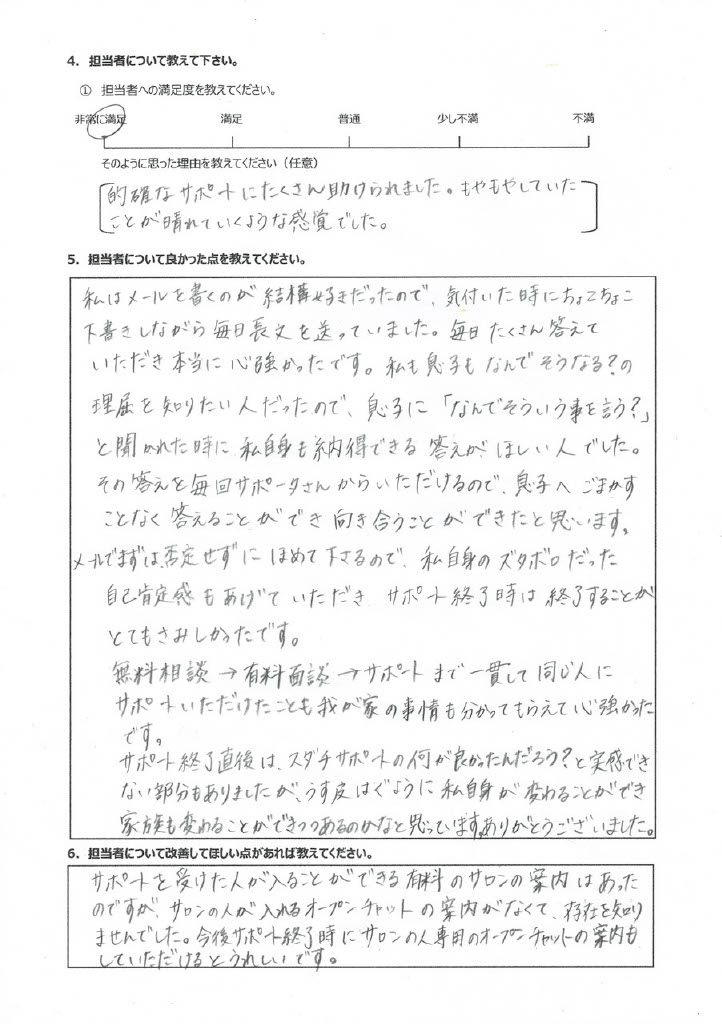 4. 担当者について教えて下さい。
① 担当者への満足度を教えてください。
非常に満足 満足 普通 少し不満 不満
そのように思った理由を教えてください（任意）
的確なサポートにたくさん助けられました。もやもやしていた
ことが晴れていくような感覚でした。
5. 担当者について良かった点を教えてください。
私はメールを書くのが結構好きだったので、気付いた時にちょこちょこ
下書きしながら毎日長文を送っていました。毎日たくさん答えて
いただき本当に心強かったです。私も息子もなんでそうなる?の
理屈を知りたい人だったので、息子に「なんでそういう事を言う?」
と聞かれた時に私自身も納得できる答えがほしい人でした。
その答えを毎回サポータさんからいただけるので、息子へごまかす
ことなく答えることができ向き合うことができたと思います。
メールでまずは否定せずにほめて下さるので、私自身のズタボロだった
自己肯定感もあげていただきサポート終了時は終了することが
とてもさみしかったです。
無料相談→有料面談→サポートまで一貫して同じ人に
サポートいただけたことも我が家の事情も分かってもらえて心強かった
です。
サポート終了直後は、スダチサポートの何が良かったんだろう?と実感でき
ない部分もありましたが、うす皮はぐように私自身が変わることができ
家族も変わることができつつあるのかなと思っています。ありがとうございました。
6. 担当者について改善してほしい点があれば教えてください。
サポートを受けた人が入ることができる有料のサロンの案内はあった
のですが、サロンの人が入れるオープンチャットの案内がなくて、存在を知り
ませんでした。今後サポート終了時にサロンの人専用のオープンチャットの案内も
していただけるとうれしいです。